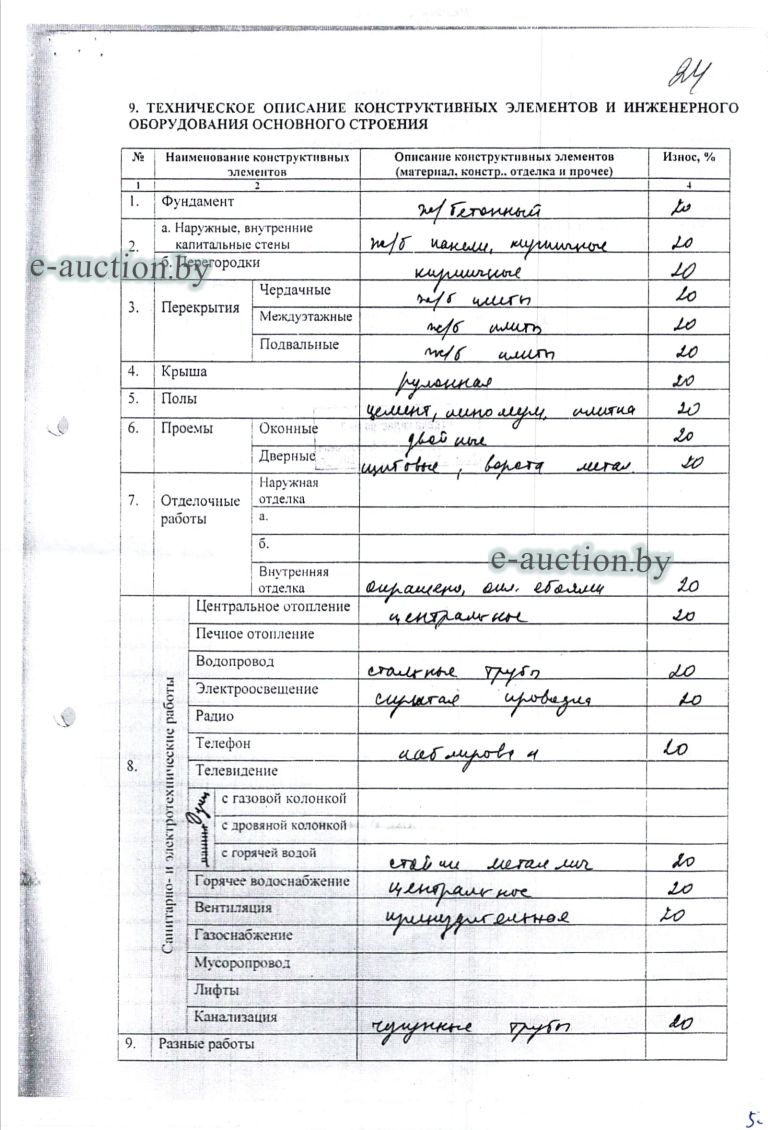 24
9. ТЕХНИЧЕСКОЕ ОПИСАНИЕ КОНСТРУКТИВНЫХ ЭЛЕМЕНТОВ И ИНЖЕНЕРНОГО
ОБОРУДОВАНИЯ ОСНОВНОГО СТРОЕНИЯ
№ Наименование конструктивных элементов Описание конструктивных элементов (материал, констр., отделка и прочее) Износ, %
1 2 4
1. Фундамент ж/бетонный 20
2. а. Наружные, внутренние капитальные стены ж/б панели, кирпичные 20
e-auction.by
б. Перегородки кирпичные 20
3. Перекрытия Чердачные ж/б плиты 20
Междуэтажные ж/б плиты 20
Подвальные ж/б плиты 20
4. Крыша рулонная 20
5. Полы цемент, линолеум, плитка 20
6. Проемы Оконные двойные 20
Дверные щитовые, ворота метал. 20
7. Отделочные работы Наружная отделка
а.
б.
e-auction.by
Внутренняя отделка окрашено, окл. обоями 20
8. Санитарно- и электротехнические работы
Центральное отопление центральное 20
Печное отопление
Водопровод стальные трубы 20
Электроосвещение скрытая проводка 20
Радио
Телефон 20
Телевидение
с газовой колонкой
с дровяной колонкой
с горячей водой металлич 20
Горячее водоснабжение центральное 20
Вентиляция принудительная 20
Газоснабжение
Мусоропровод
Лифты
Канализация чугунные трубы 20
9. Разные работы
5.